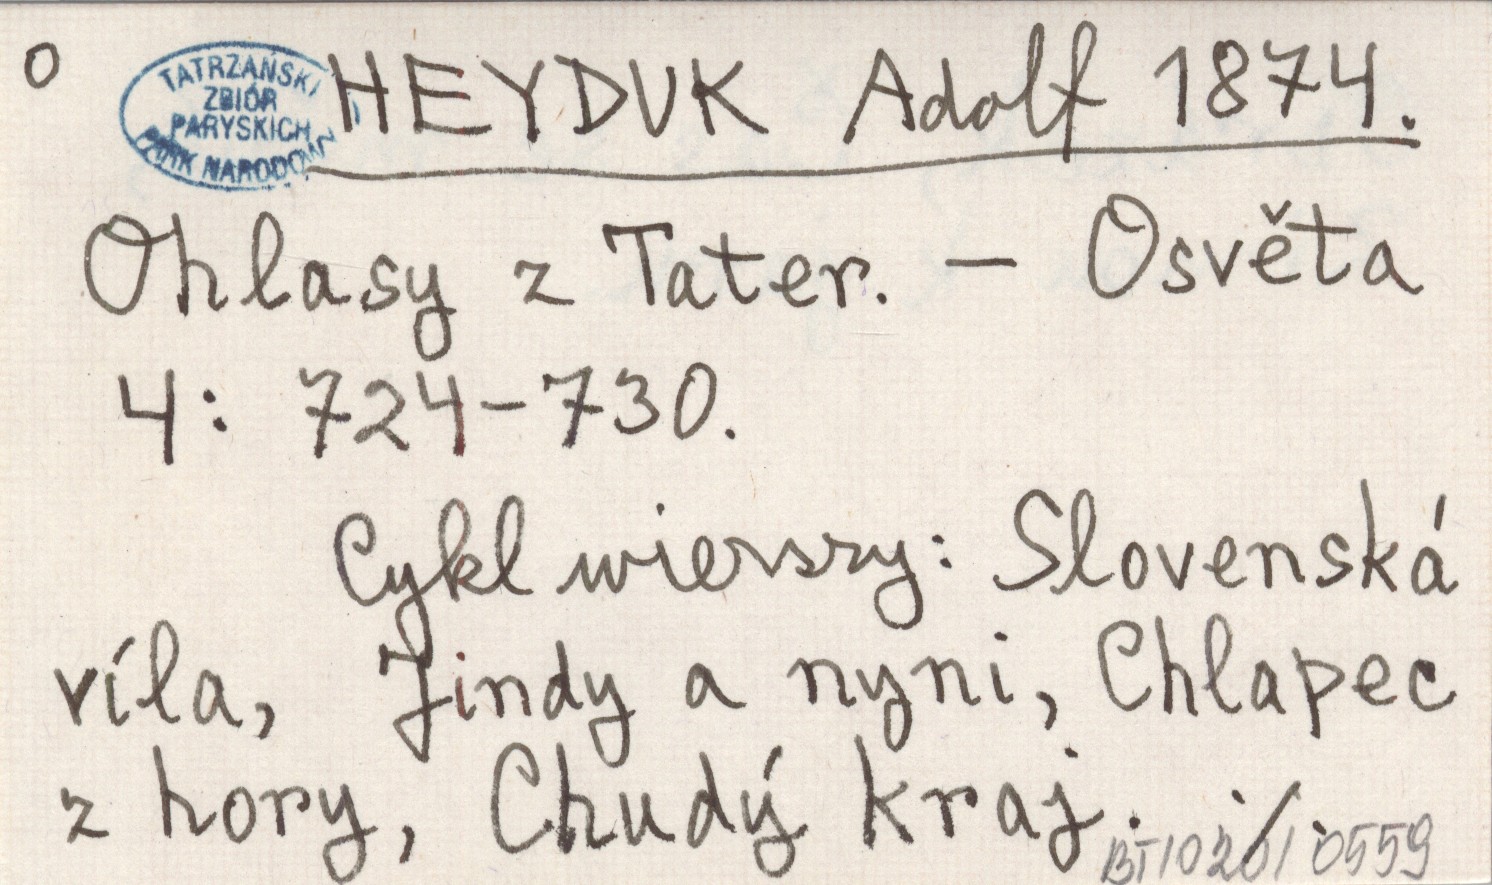 O
TATRZAŃSKI
ZBIÓR
PARYSKICH
NARODOW
HEYDUK Adolf 1874.
Ohlasy z Tater. – Osvěta
4: 724–730.
Cykl wierszy: Slovenská
víla, Jindy a nyni, Chlapec
z hory, Chudý kraj. ./.
0559